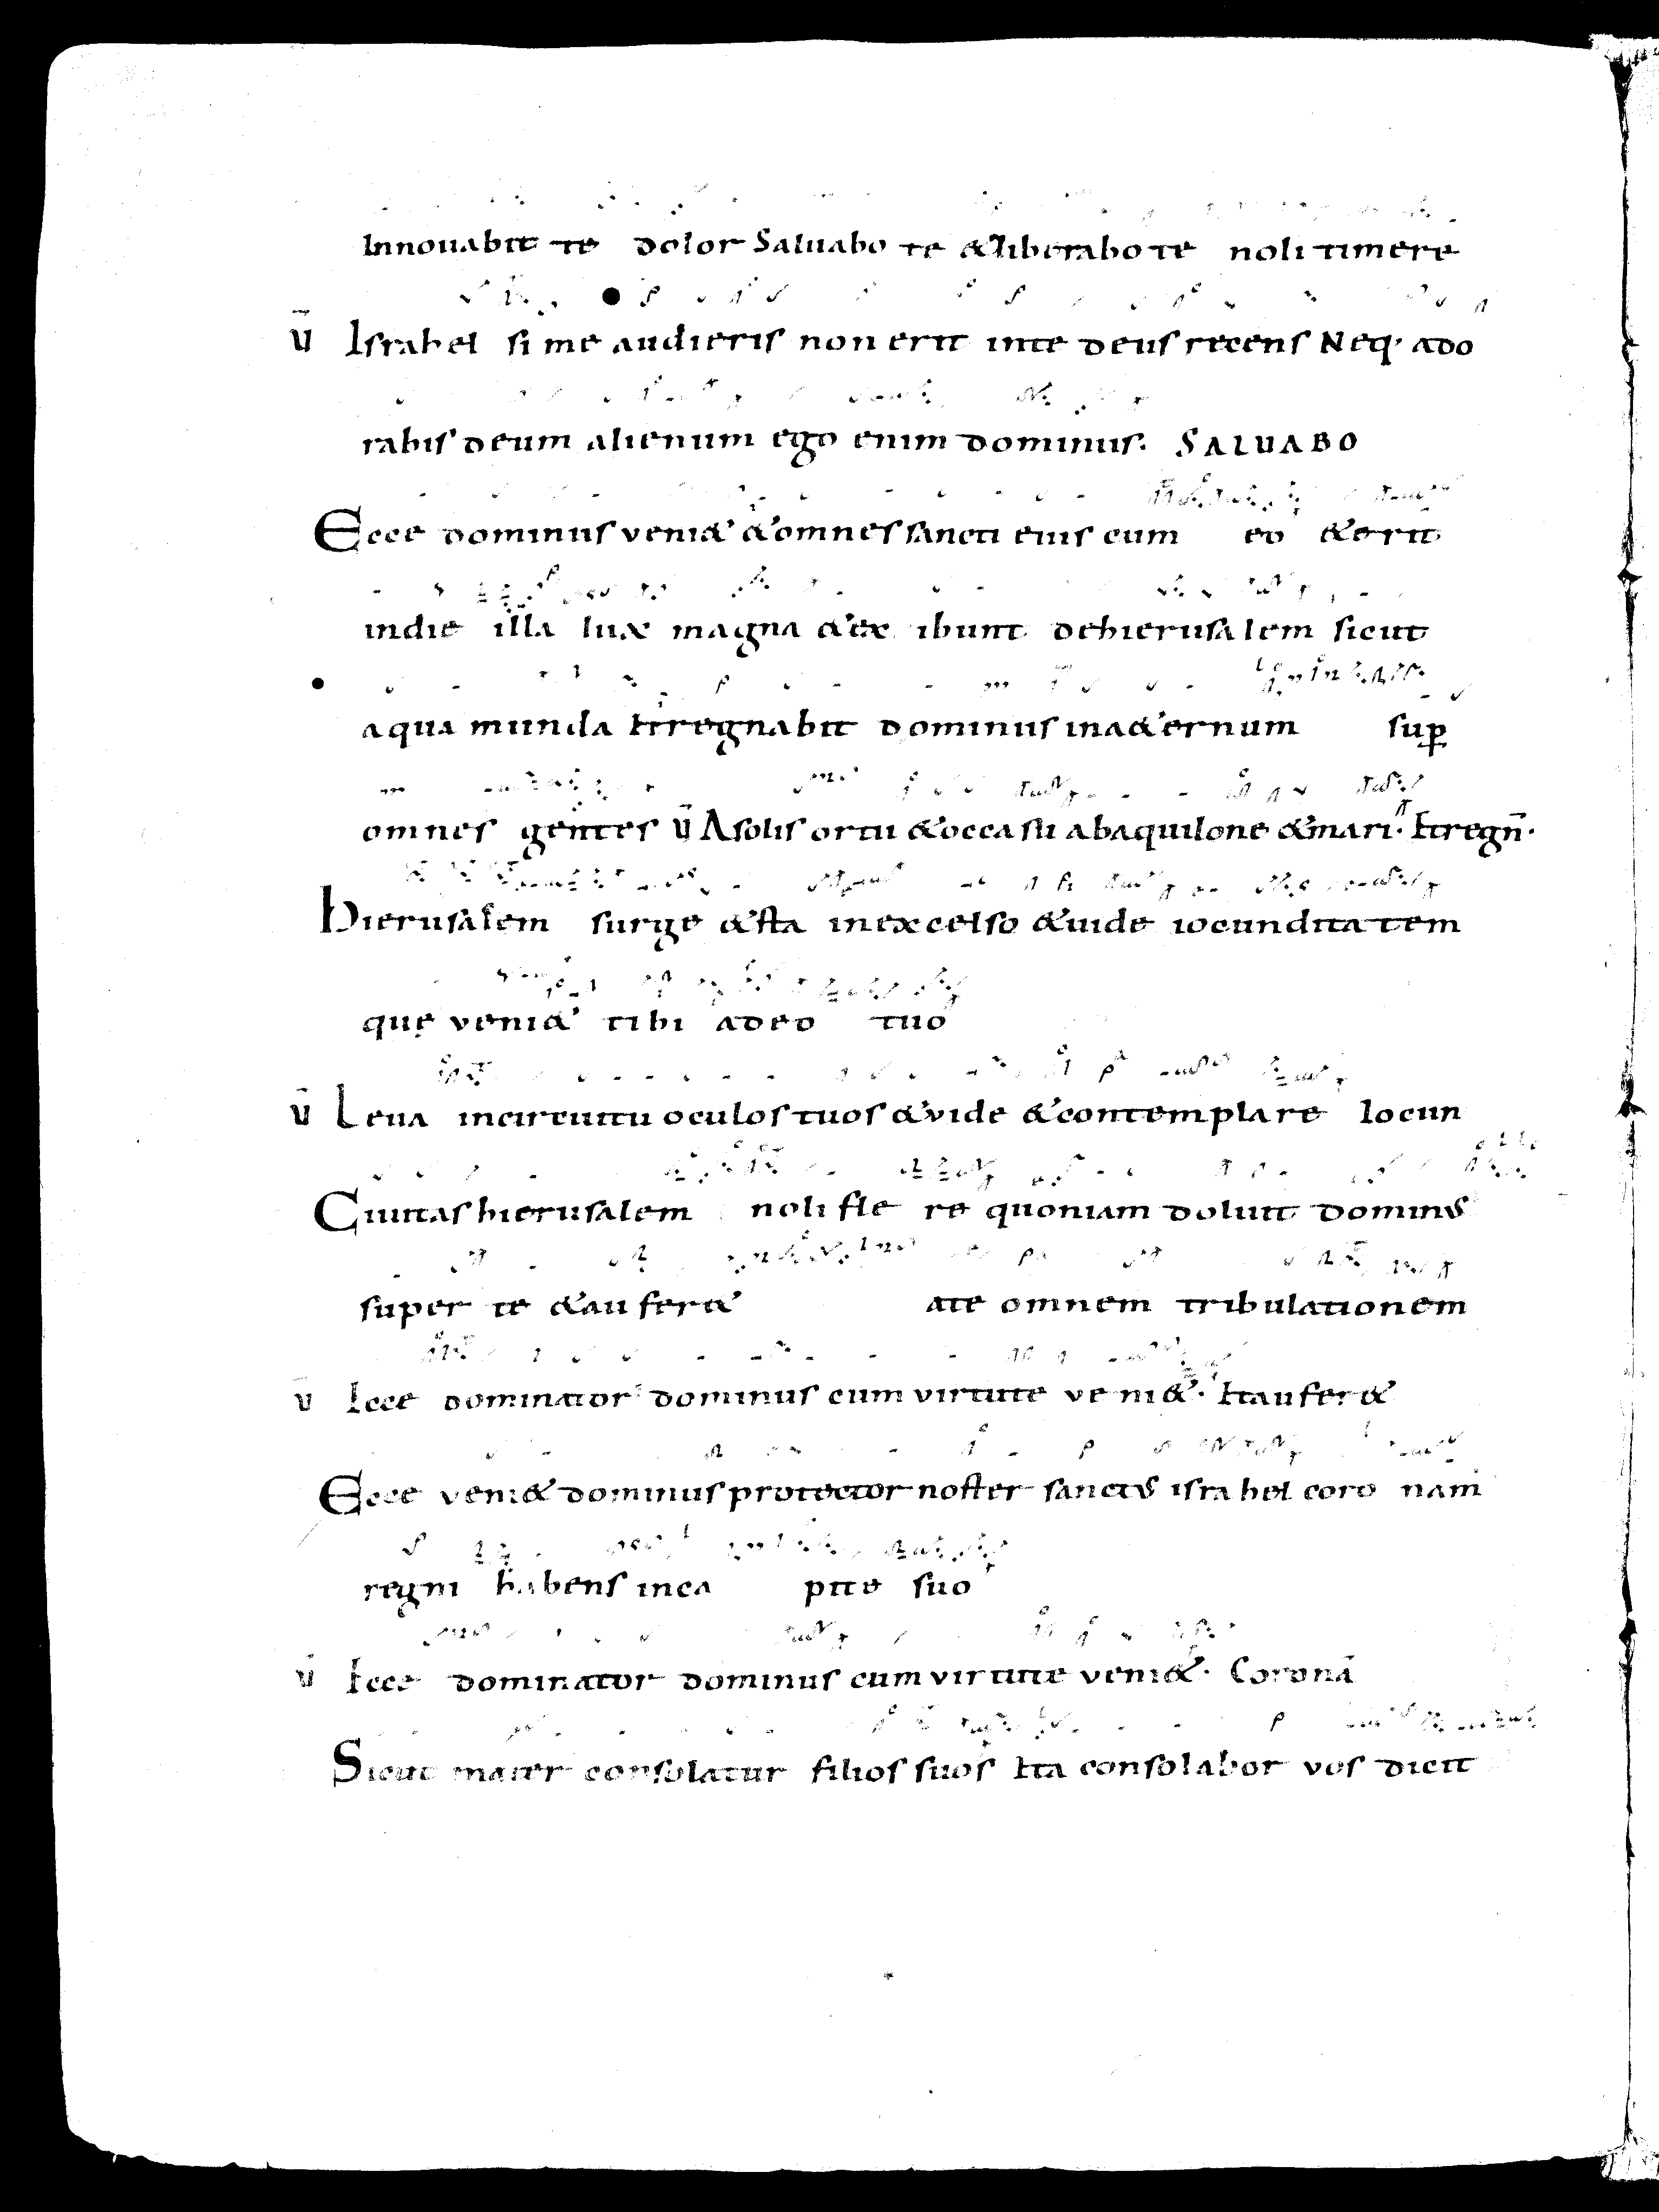 Innouabit te dolor Saluabo te &liberabo te noli timere
v̄ Israhel si me audieris non erit inte deus recens Neq· ado
rabis deum alienum ego enim dominus. SALUABO
Ecce dominus veni& &omnes sancti eius cum eo &erit
indie illa lux magna &ex ibunt dehierusalem sicut
aqua munda Etregnabit dominus ina&ernum sup̄
omnes gentes v̄ Asolis ortu &occasu abaquilone &mari· Etregn̄·
Hierusalem surge &sta inexcelso &uide iocunditatem
quę veni& tibi adeo tuo
v̄ Leua incircuitu oculos tuos &vide &contemplare Iocun
Ciuitas hierusalem noli fle re quoniam doluit dominus
super te &aufer& ate omnem tribulationem
v̄ Ecce dominator dominus cum virtute ve ni&· Etaufer&
Ecce veni& dominus protector noster sanctus israhel coro nam
regni habens inca pite suo
v̄ Ecce dominator dominus cum virtute veni&· Coronā
Sicut mater consolatur filios suos Ita consolabor vos dicit